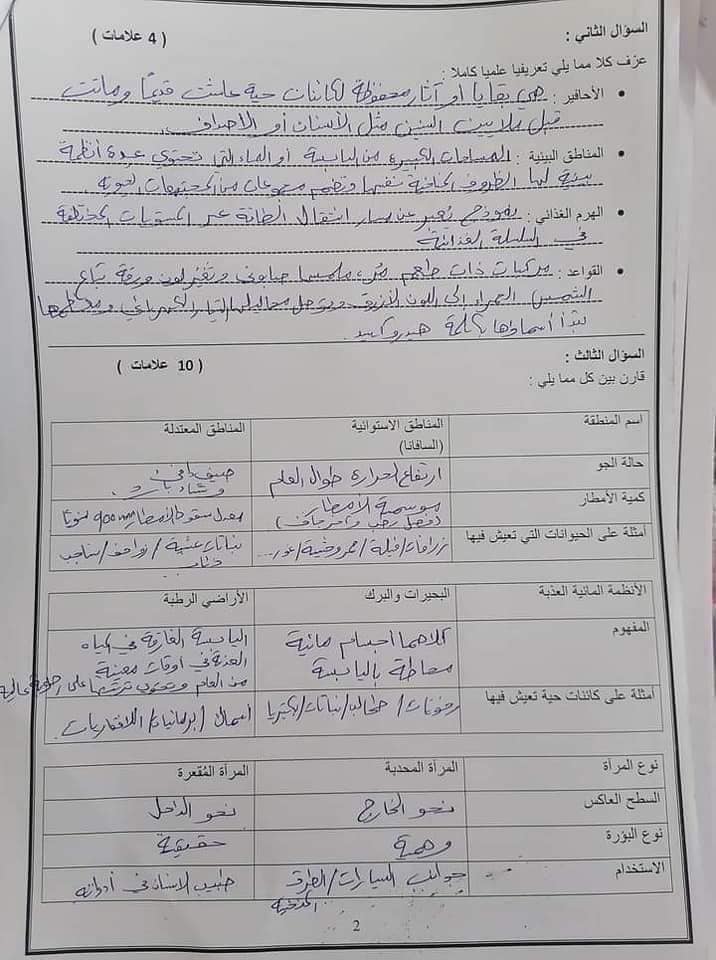 السؤال الثاني :
( 4 علامات )
عرّف كلا مما يلي تعريفيا علميا كاملا :
• الأحافير : هي بقايا أو آثار محفوظة لكائنات حية عاشت قديمًا وماتت
قبل ملايين السنين مثل الأسنان أو الأصداف.
• المناطق البيئية : المساحات الكبيرة من اليابسة أو الماء التي تحتوي عدة أنظمة
بيئية لها الظروف المناخية نفسها وتضم مجموعات من المجتمعات الحيوية
• الهرم الغذائي : نموذج يُعبر عن مسار انتقال الطاقة عبر المستويات المختلفة
في السلسلة الغذائية
• القواعد : مركبات ذات طعم مُر، ملمسها صابوني وتغير لون ورقة تباع
الشمس الحمراء إلى اللون الأزرق وتوصل محاليلها التيار الكهربائي ومعظمها
تبدأ أسماؤها بكلمة هيدروكسيد.
السؤال الثالث :
( 10 علامات )
قارن بين كل مما يلي :
اسم المنطقة المناطق الاستوائية (السافانا) المناطق المعتدلة
حالة الجو ارتفاع الحرارة طوال العام صيف دافئ وشتاء بارد.
كمية الأمطار موسمية الأمطار (فصل رطب وآخر جاف) معدل سقوط الأمطار 900 mm سنويًا
أمثلة على الحيوانات التي تعيش فيها زرافات / فيلة / حمر وحشية / نباتات عشبية / زواحف / سناجب
الأنظمة المائية العذبة البحيرات والبرك الأراضي الرطبة
المفهوم كلاهما أجسام مائية محاطة باليابسة اليابسة الغارقة في المياه العذبة في أوقات معينة من العام وتحتوي تربتها على رطوبة عالية
أمثلة على كائنات حية تعيش فيها طحالب / نباتات / بكتيريا أسماك / برمائيات / اللافقاريات.
نوع المرآة المرآة المحدبة المرآة المُقعرة
السطح العاكس نحو الخارج نحو الداخل
نوع البؤرة وهمية حقيقية
الاستخدام جوانب السيارات / الطرق طبيب الاسنان في أدواته
2